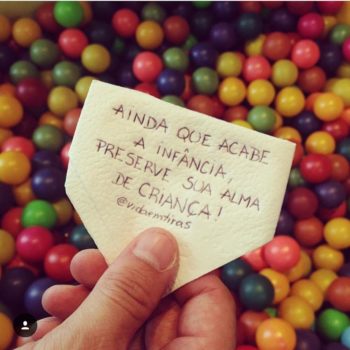 AINDA QUE ACABE
A INFÂNCIA,
PRESERVE SUA ALMA
DE CRIANÇA!
@vidaemtiras